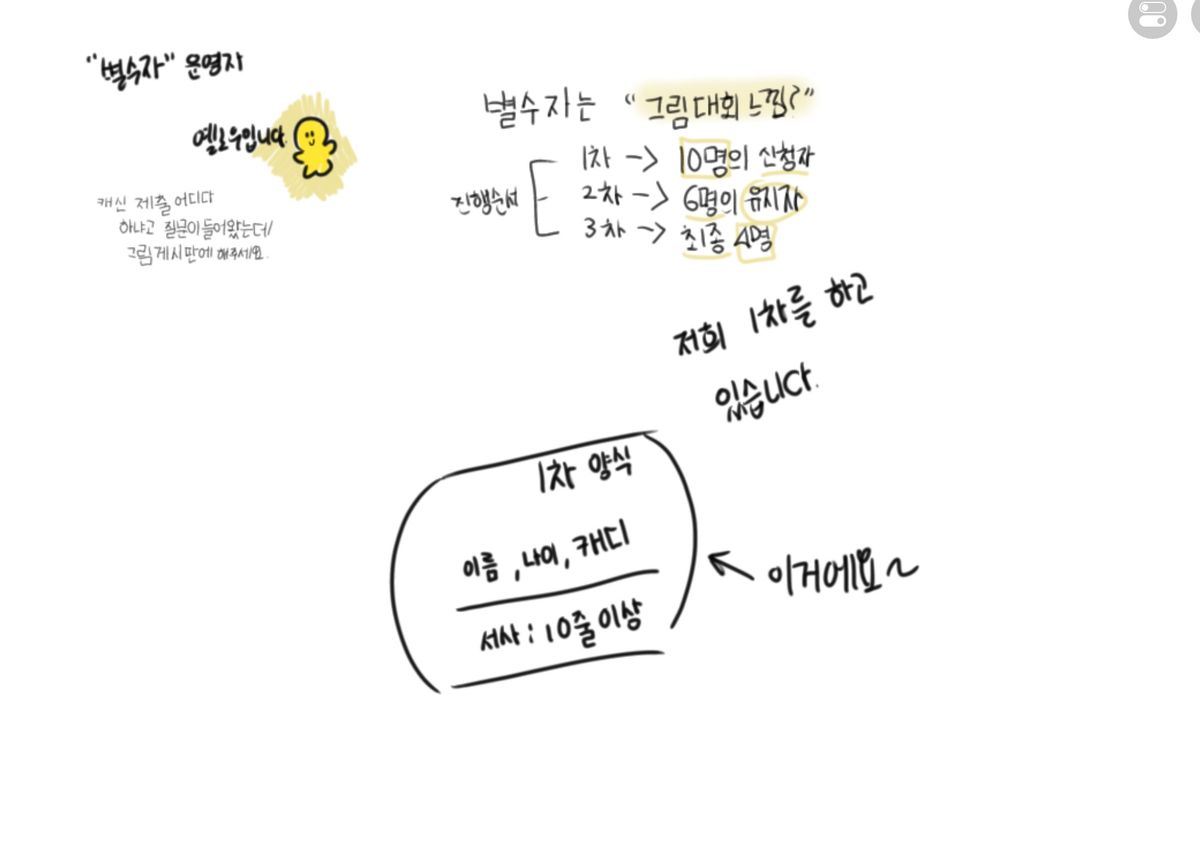 "별수자" 운영자
옐로우입니다.
캐신 제출 어디다
하냐고 질문이 들어왔는데/
그림게시판에 해주세요.
별수자는 "그림대회 느낌?"
진행순서
1차 -> 10명의 신청자
2차 -> 6명의 유지자
3차 -> 최종 4명
저희 1차를 하고
있습니다.
1차 양식
이름, 나이, 캐디
서사 : 10줄이상
이거에요~